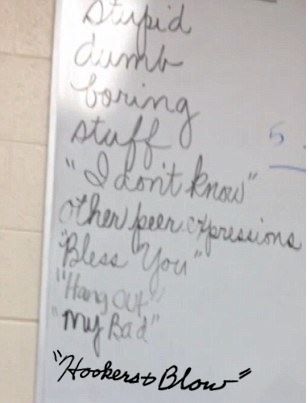 stupid
dumb
boring
stuff
"I don't know"
other peer expressions
"Bless You"
"Hang Out"
"My Bad"
"Hookers & Blow"
5